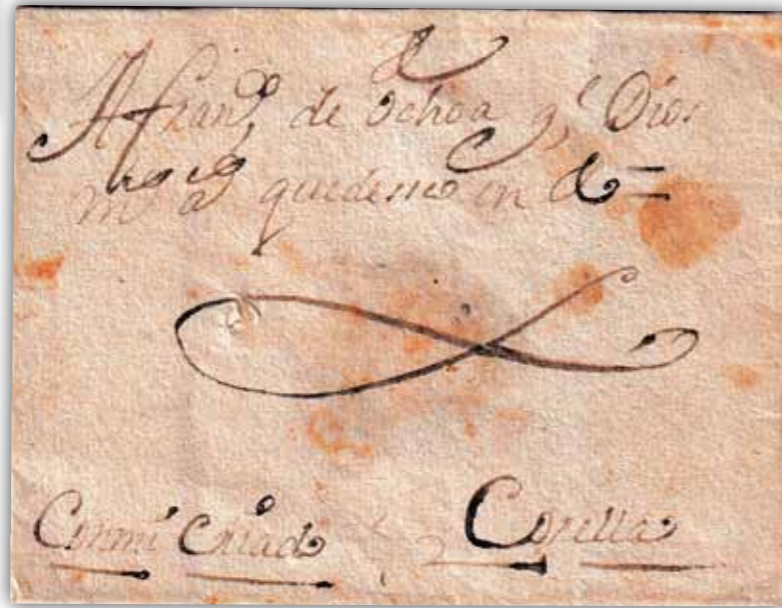 A Fran^co de Ochoa g^e Dios
m^s a^s quedeme en
Con mi Criado Corella